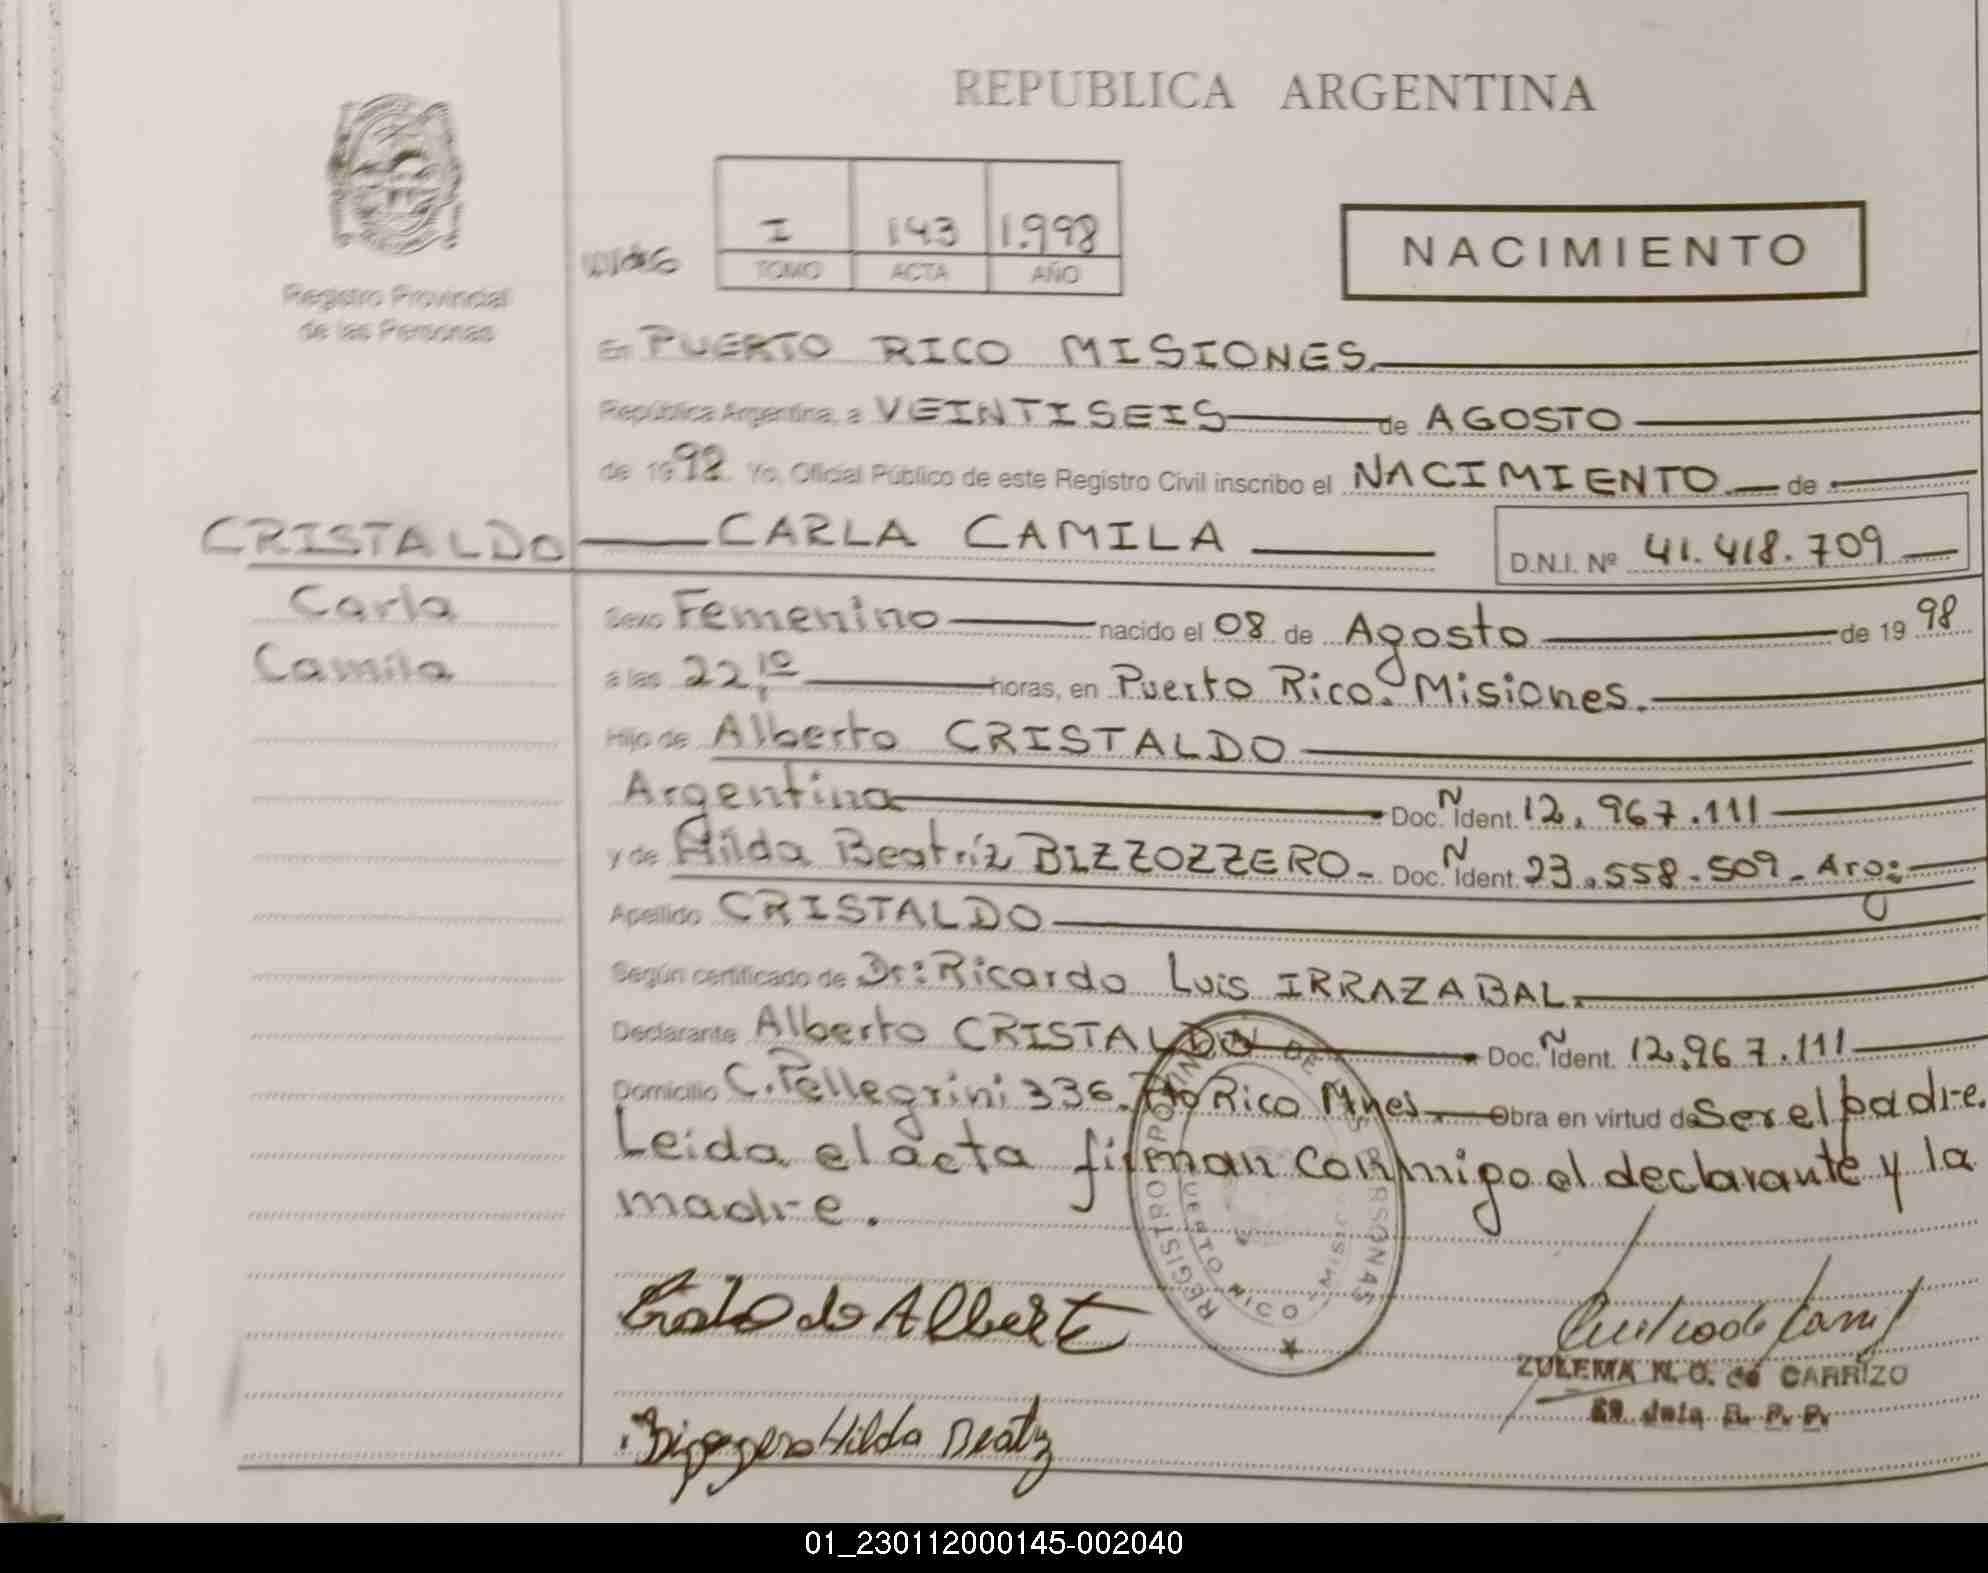 REPUBLICA ARGENTINA
Registro Provincial
de las Personas
I 143 1.998
TOMO ACTA AÑO
NACIMIENTO
En PUERTO RICO MISIONES.
República Argentina, a VEINTISEIS de AGOSTO
de 1998. Yo, Oficial Público de este Registro Civil inscribo el NACIMIENTO de
CRISTALDO CARLA CAMILA D.N.I. Nº 41.418.709
Carla
Camila
Sexo Femenino nacido el 08 de Agosto de 1998
a las 22,10 horas, en Puerto Rico. Misiones.
Hijo de Alberto CRISTALDO
Argentina Doc. Ñ Ident. 12.967.111
y de Hilda Beatriz BIZZOZZERO - Doc. Ñ Ident. 23.558.509 - Arg:
Apellido CRISTALDO
Según certificado de Dr: Ricardo Luis IRRAZABAL.
Declarante Alberto CRISTALDO Doc. Ñ Ident. 12.967.111
Domicilio C. Pellegrini 336. Pto Rico Mnes. Obra en virtud de Ser el padre.
Leida el acta firman conmigo el declarante y la
madre.
REGISTRO PROVINCIAL DE LAS PERSONAS
PUERTO RICO - MISIONES
ZULEMA N. O. de CARRIZO
Hilda Beatriz
01_230112000145-002040